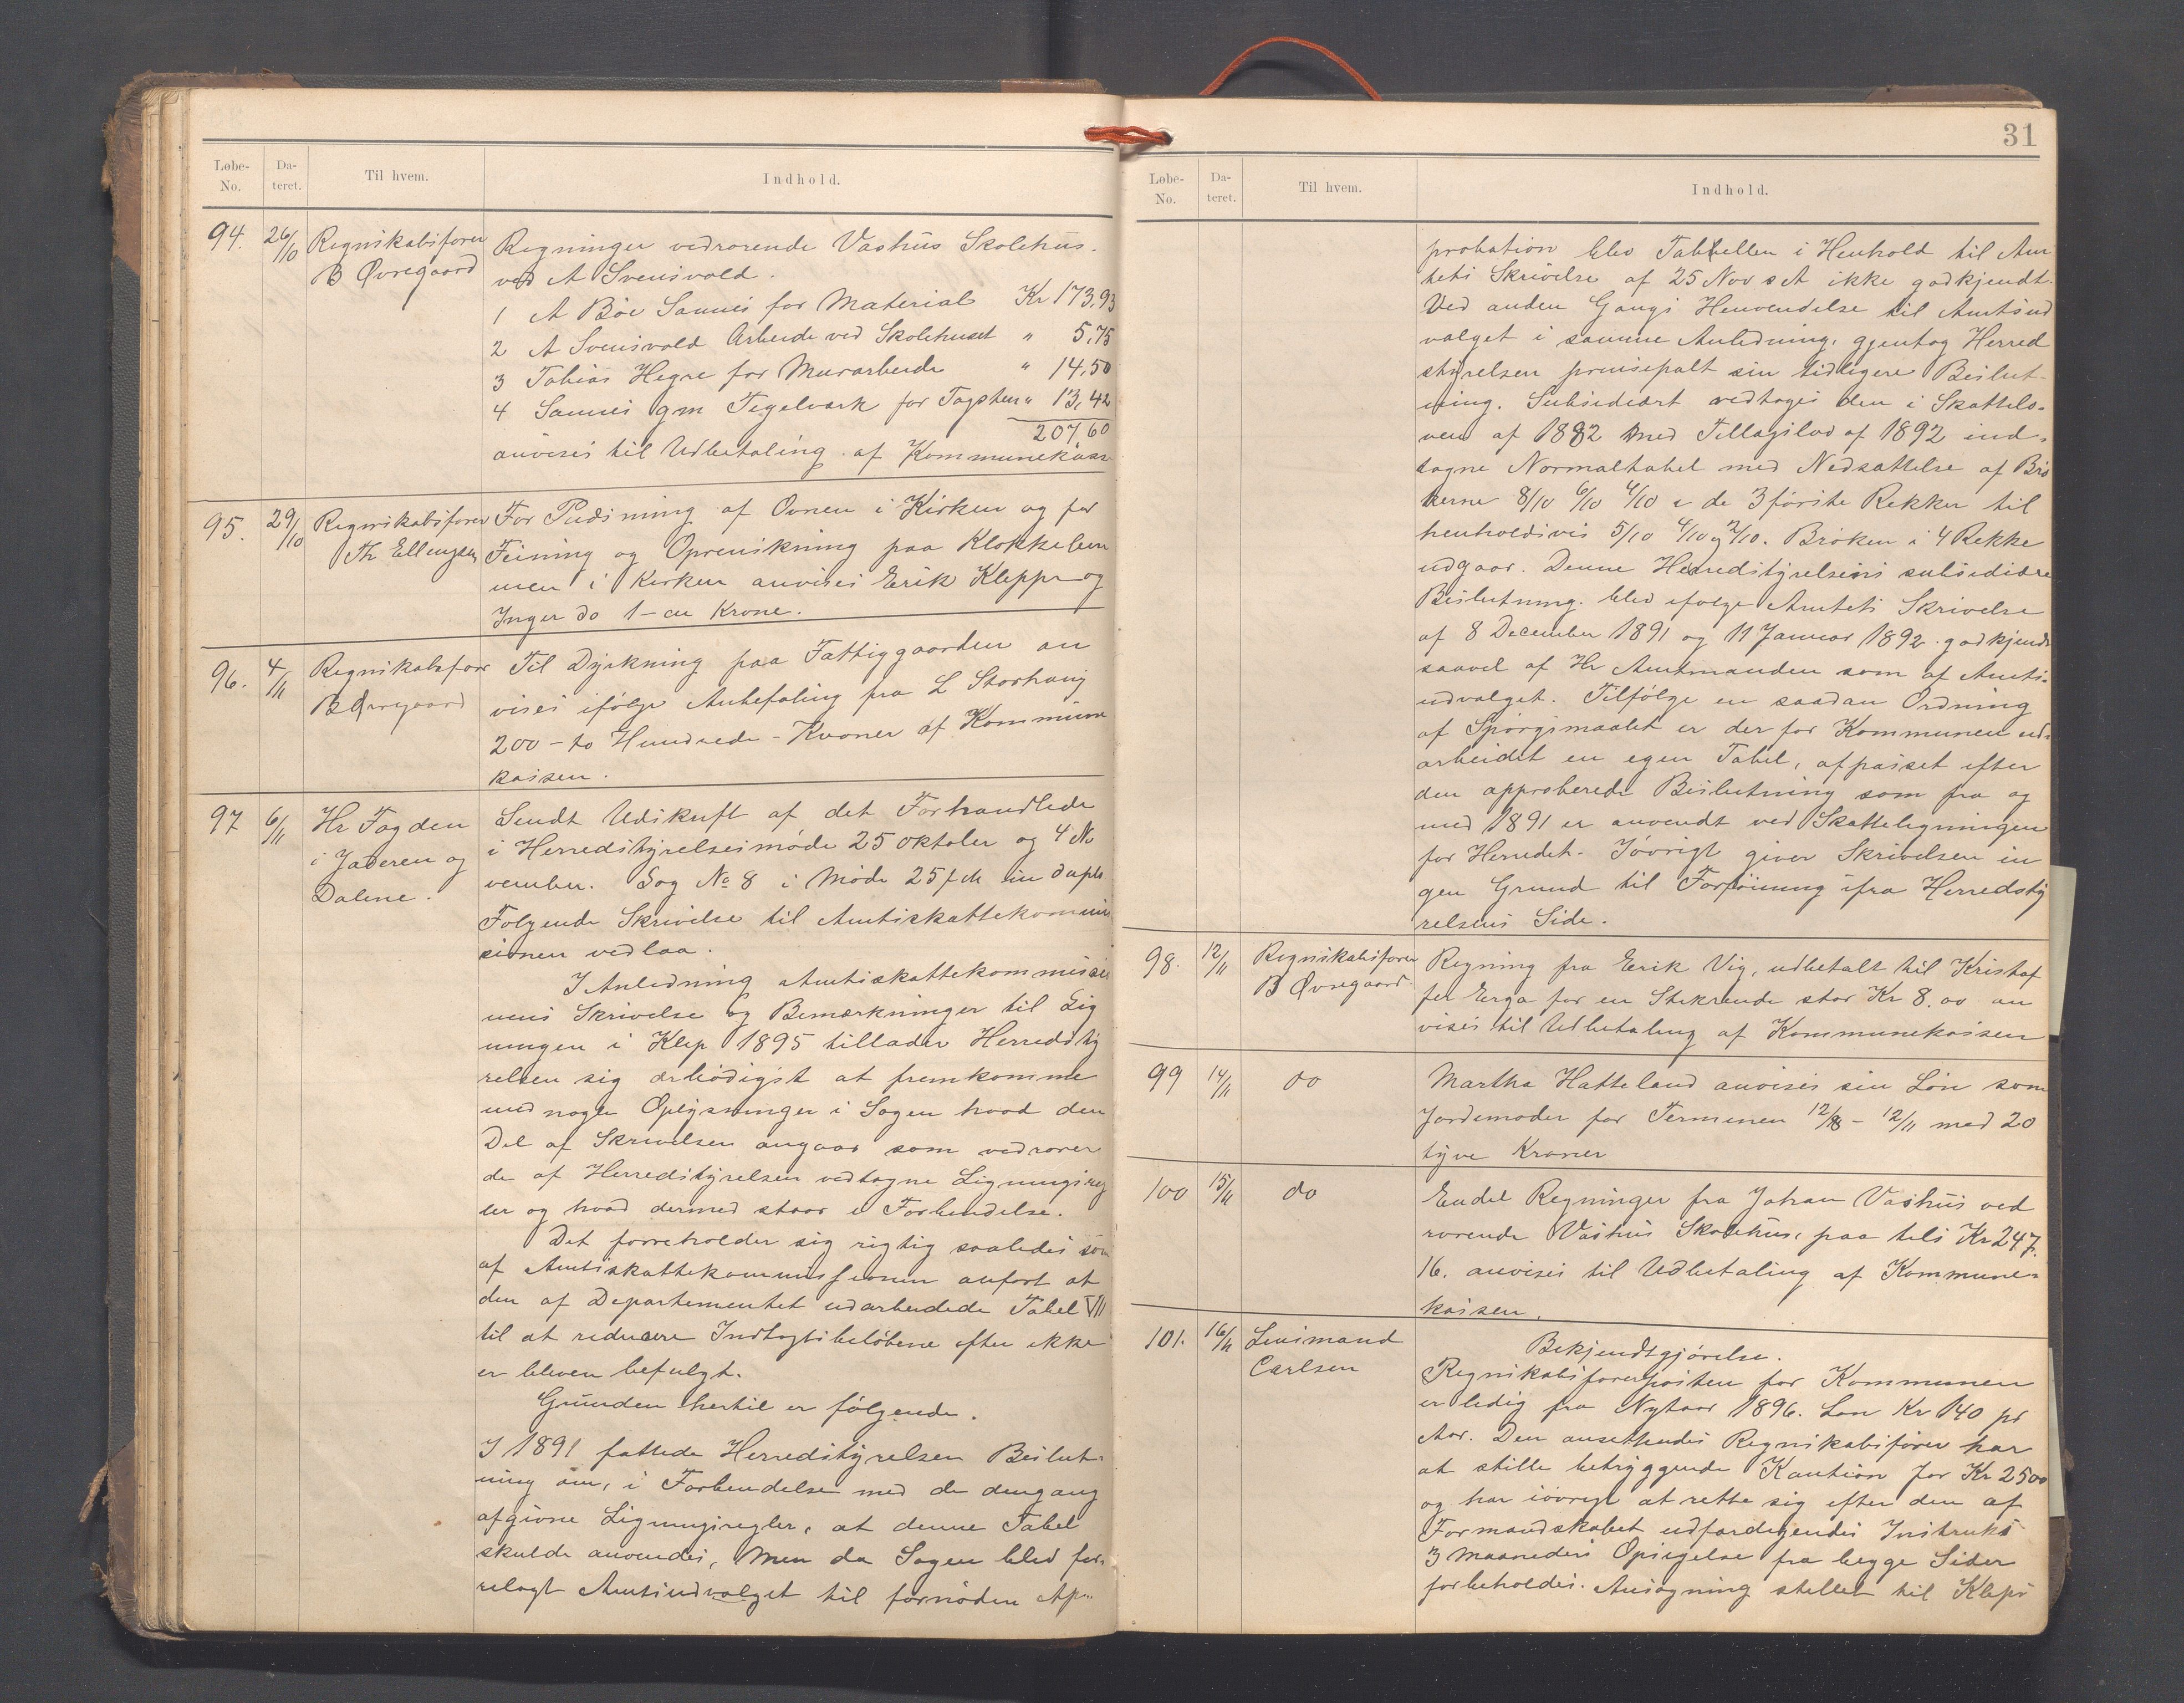 Løbe-No. Da-teret. Til hvem. Indhold.
94. 26/10 Regnskabsfører B Øvregaard
Regninger vedrorende Vashus Skolehus.
ved A Svensvold.
1 A Böe Sannes for Material Kr 173,93
2 A Svensvold Arbeide ved Skolehuset " 5,75
3 Tobias Hegre for Murarbeide " 14,50
4 Sannes gm Tegelværk for Tagsten " 13,42
207,60
anvises til Udbetaling af Kommunekass
95. 29/10 Regnskabsfører Th Ellingsen
For Pudsning af Ovnen i Kirken og for
Feining og Oprenskning paa Klokkelem
men i Kirken anvises Erik Kleppe og
Inger do 1 – en Krone.
96. 4/11 Regnskabsfører B Øvregaard
Til Dyrkning paa Fattiggaarden an
vises ifølge Anbefaling fra L Storhaug
200 – to Hundrede – Kroner af Kommune
kassen.
97 6/11 Hr Fogden i Jæderen og Dalene.
Sendt Udskrift af det Forhandlede
i Herredstyrelsesmøde 25 oktober og 4 No
vember. Sag No 8 i Møde 25 f.M. in duplo
Folgende Skrivelse til Amtsskattekommis
sionen vedlaa.
I Anledning Amtsskattekommissio
nens Skrivelse og Bemærkninger til Lig
ningen i Klep 1895 tillader Herredsty
relsen sig ærbödigst at fremkomme
med nogle Oplysninger i Sagen hvad den
Del af Skrivelsen angaar som vedrører
de af Herredstyrelsen vedtagne Ligningsreg
ler og hvad dermed staar i Forbindelse.
Det forreholder sig rigtig saaledes som
af Amtsskattekommissionen anført at
den af Departementet udarbeidede Tabel VII
til at reducere Indtægtsbeløbene efter ikke
er bleven befulgt.
Grunden hertil er fölgende.
I 1891 fattede Herredstyrelsen Beslut-
ning om, i Forbindelse med de dengang
afgivne Ligningsregler, at denne Tabel
skulde anvendes, Men da Sagen blev fo-
relagt Amtsudvalget til fornöden Ap-
31
Løbe-No. Da-teret. Til hvem. Indhold.
probation blev Tabbellen i Henhold til Am
tets Skrivelse af 25 Nov s A ikke godkjendt.
Ved anden Gangs Henvendelse til Amtsud
valget i samme Anledning, gjentog Herred
styrelsen prinsipalt sin tidligere Beslut-
ning. Subsidiært vedtoges den i Skattelo-
ven af 1882 med Tillægslov af 1892 ind-
tagne Normaltabel med Nedsættelse af Brö
kerne 8/10 6/10 4/10 i de 3 förste Rekker til
henholdsvis 5/10 4/10 og 2/10. Bröken i 4 Rekke
udgaar. Denne Herredstyrelsens subsidiære
Beslutning blev ifolge Amtets Skrivelse
af 8 December 1891 og 11 Januar 1892 godkjendt
saavel af Hr Amtmanden som af Amts-
udvalget. Tilfölge en saadan Ordning
af Spörgsmaalet er der for Kommunen ud-
arbeidet en egen Tabel, afpasset efter
den approberede Beslutning som fra og
med 1891 er anvendt ved Skatteligningen
for Herredet. Iövrigt giver Skrivelsen in
gen Grund til Forföining ifra Herredsty
relsens Side.
98. 12/11 Regnskabsfører B Øvregaard
Regning fra Erik Vig, udbetalt til Kristof
fer Erga for en Stekrende stor Kr 8.00 an
vises til Udbetaling af Kommunekassen
99 14/11 do
Martha Hatteland anvises sin Lön som
Jordemoder for Terminen 12/8 – 12/11 med 20
tyve Kroner
100 15/11 do
Endel Regninger fra Johan Vashus ved
rorende Vashus Skolehus, paa tils Kr 247.
16. anvises til Udbetaling af Kommune-
kassen.
101. 16/11 Lensmand Carlsen
Bekjendtgjörelse.
Regnskabsförerposten for Kommunen
er ledig fra Nytaar 1896. Lön Kr 140 pr
Aar. Den ansættendes Regnskabsförer har
at stille betryggende Kaution for Kr 2500
og har iövrigt at rette sig efter den af
Formandskabet udfærdigendes Instruks
3 Maaneders Opsigelse fra begge Sider
forbeholdes. Ansögning stillet til Kleps